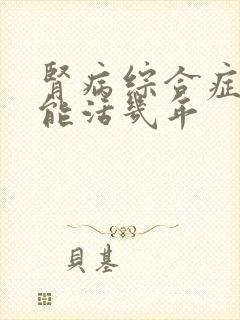 腎病綜合症
能活幾年
貝基